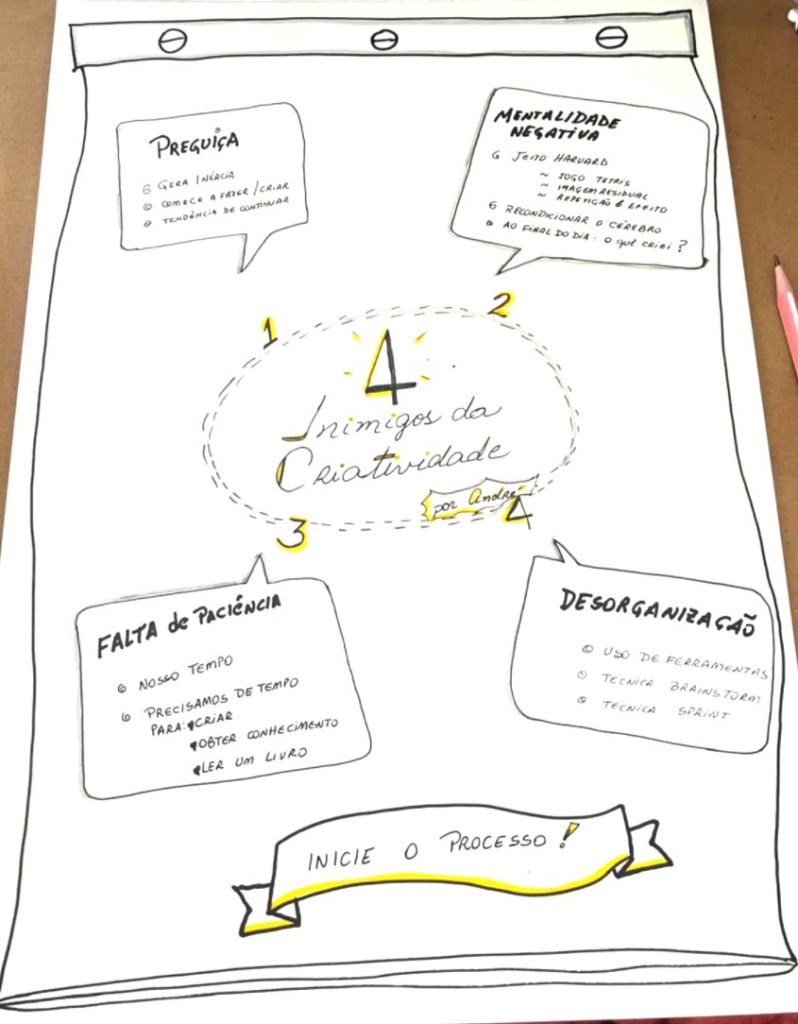 PREGUIÇA
GERA INÉRCIA
COMECE A FAZER/CRIAR
TENDÊNCIA DE CONTINUAR
MENTALIDADE
NEGATIVA
JEITO HARVARD
~ JOGO TETRIS
~ IMAGEM RESIDUAL
~ REPETIÇÃO É EFEITO
RECONDICIONAR O CÉREBRO
AO FINAL DO DIA: O QUÊ CRIEI?
1
2
4
Inimigos da
Criatividade
por André
3
4
FALTA de PACIÊNCIA
NOSSO TEMPO
PRECISAMOS DE TEMPO
PARA: CRIAR
OBTER CONHECIMENTO
LER UM LIVRO
DESORGANIZAÇÃO
USO DE FERRAMENTAS
TÉCNICA BRAINSTORM
TÉCNICA SPRINT
INICIE O PROCESSO!